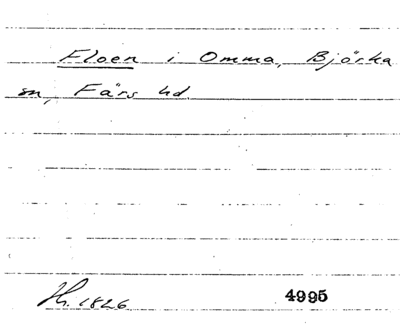 Floen i Omma, Björka
sn, Färs hd.
Hs. 1826 4995